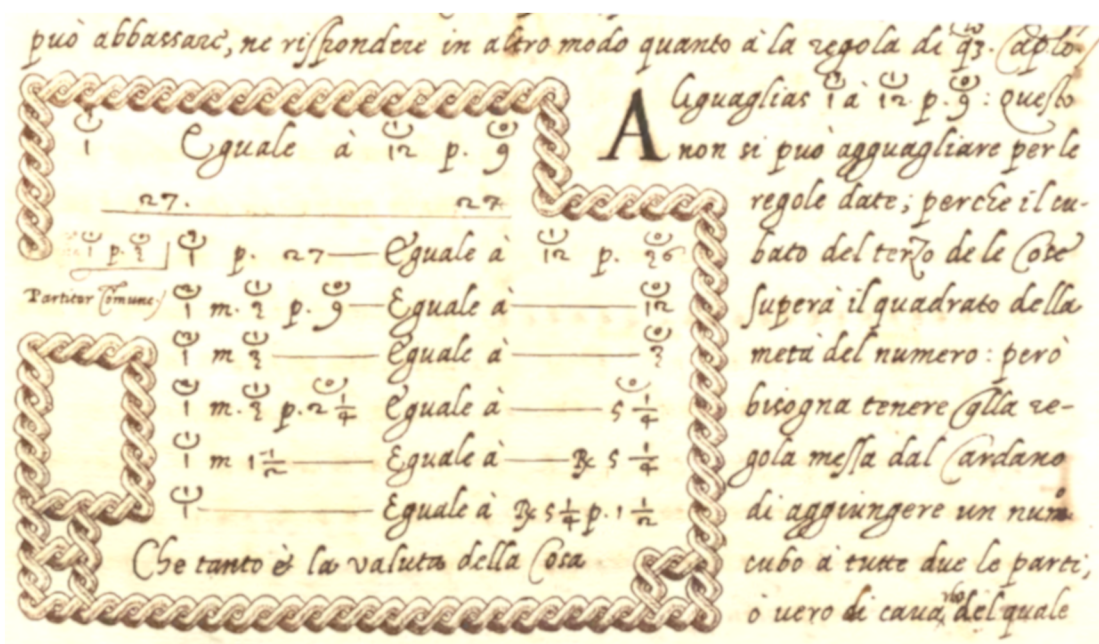 può abbassare, ne rispondere in altro modo quanto à la regola di
1³ Eguale à 12¹ p. 9⁰
27. 27
1¹ p. 3⁰ 1³ p. 27 — Eguale à 12¹ p. 36⁰
Partitor Comune
1² m. 3¹ p. 9⁰ — Eguale à — 12⁰
1² m 3¹ — Eguale à — 3⁰
1² m. 3¹ p. 2 1/4⁰ Eguale à — 5 1/4⁰
1¹ m 1 1/2 — Eguale à — ℞ 5 1/4
1¹ — Eguale à ℞ 5 1/4 p. 1 1/2
Che tanto è la valuta della Cosa
Agguaglias 1³ à 12¹ p. 9⁰ : Questo
non si può agguagliare per le
regole date; perche il cu-
bato del terzo de le Cose
supera il quadrato della
metà del numero : però
bisogna tenere qlla re-
gola messa dal Cardano
di aggiungere un num.º
cubo à tutte due le parti;
ò vero di cavarlo, del quale